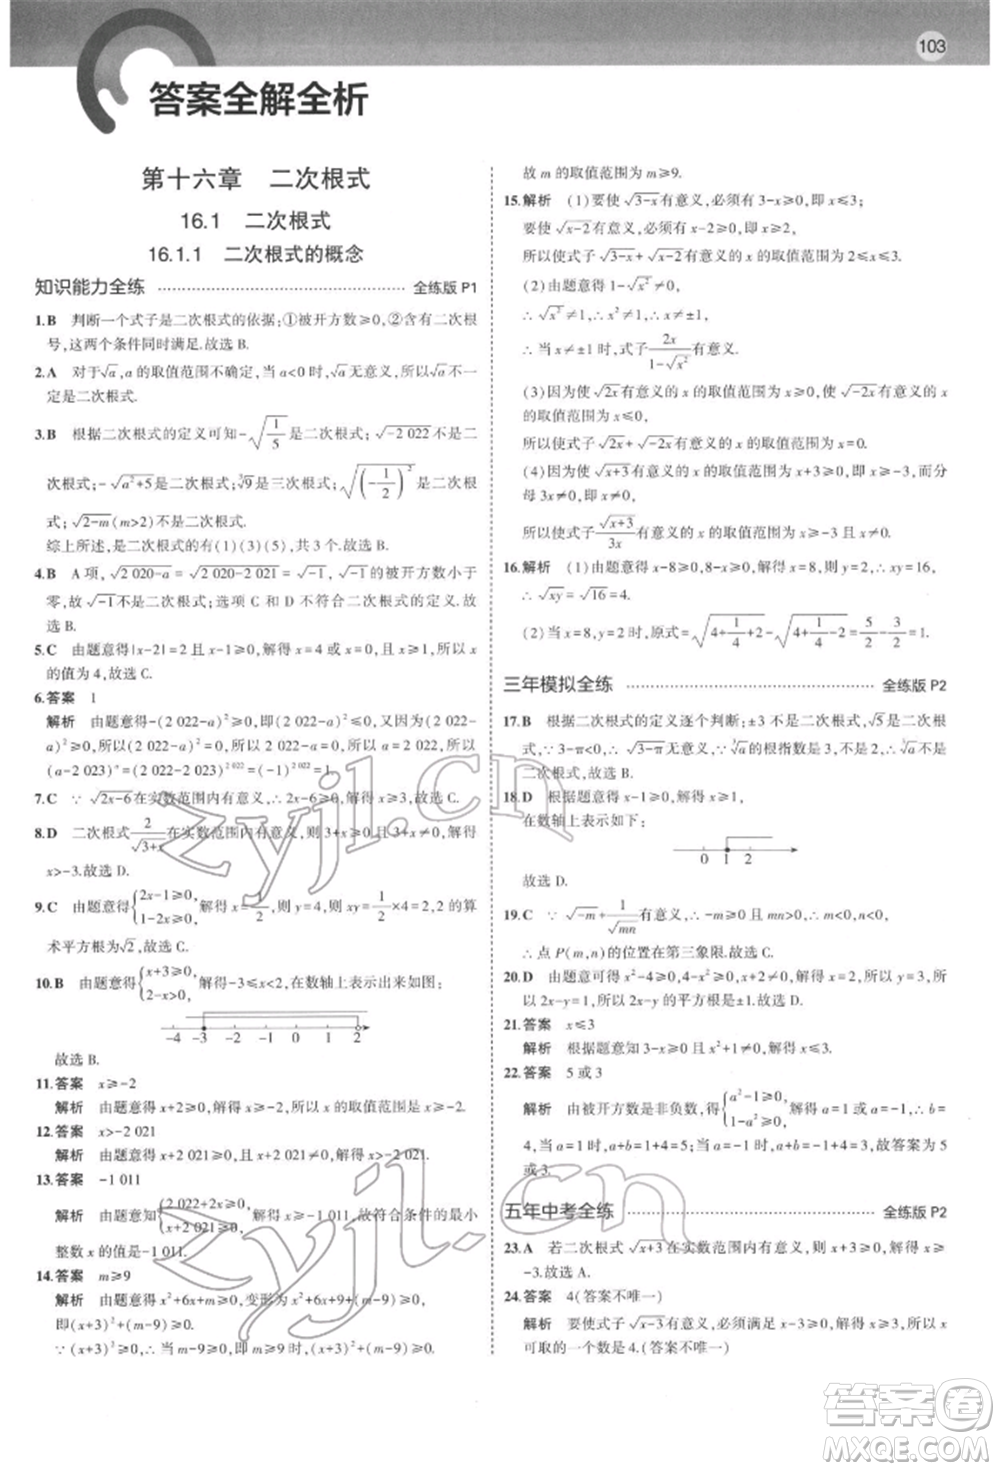 103
答案全解全析
第十六章　二次根式
16.1　二次根式
16.1.1　二次根式的概念
知识能力全练 全练版 P1
1.B　判断一个式子是二次根式的依据:①被开方数≥0,②含有二次根
号,这两个条件同时满足.故选 B.
2.A　对于√a,a 的取值范围不确定,当 a<0 时,√a无意义,所以√a不一
定是二次根式.
3.B　根据二次根式的定义可知-√(1/5)是二次根式;√(-2 022)不是二
次根式;-√(a²+5)是二次根式;∛9是三次根式;√((-1/2)²)是二次根
式;√(2-m)(m>2)不是二次根式.
综上所述,是二次根式的有(1)(3)(5),共 3 个.故选 B.
4.B　A 项,√(2 020-a)=√(2 020-2 021)=√(-1),√(-1)的被开方数小于
零,故√(-1)不是二次根式;选项 C 和 D 不符合二次根式的定义.故
选 B.
5.C　由题意得|x-2|=2 且 x-1>0,所以解得 x=4 或 x=0(舍去),所以 x
的值为 4,故选 C.
6.答案　1
解析　由题意得-(2 022-a)²≥0,即(2 022-a)²≤0,又因为(2 022-
a)²≥0,所以(2 022-a)²=0,所以 2 022-a=0,解得 a=2 022,所以
(a-2 023)^2 022=(2 022-2 023)^2 022=(-1)^2 022=1.
7.C　∵√(2x-6)在实数范围内有意义,∴2x-6≥0,解得 x≥3,故选 C.
8.D　二次根式2/√(3+x)在实数范围内有意义,则 3+x≥0 且 3+x≠0,解得
x>-3.故选 D.
9.C　由题意得{2x-1≥0, 1-2x≥0,解得 x=1/2,则 y=4,所以 xy=1/2×4=2,2 的算
术平方根为√2,故选 C.
10.B　由题意得{x+3≥0, 2-x>0,解得-3≤x<2,在数轴上表示如图:
-4 -3 -2 -1 0 1 2
故选 B.
11.答案　x≥-2
解析　由题意得 x+2≥0,解得 x≥-2,所以 x 的取值范围为 x≥-2.
12.答案　x>-2 021
解析　由题意得 x+2 021≥0 且 x+2 021≠0,解得 x>-2 021.
13.答案　-1 011
解析　由题意知{2 022+2x≥0, x+2 021≥0,解得 x≥-1 011,故符合条件的最小
整数 x 的值是-1 011.
14.答案　m≥9
解析　由题意得 x²+6x+m≥0,变形为 x²+6x+9-9+m≥0,
即(x+3)²+(m-9)≥0.
∵(x+3)²≥0,∴当 m-9≥0 时,(x+3)²+(m-9)≥0 成立,
故 m 的取值范围为 m≥9.
15.解析　(1)要使√(3-x)有意义,必须有 3-x≥0,即 x≤3;
要使√(x-2)有意义,必须有 x-2≥0,即 x≥2,
所以使式子√(3-x)+√(x-2)有意义的 x 的取值范围为 2≤x≤3.
(2)由题意得 1-√(x²)≠0,
∴√(x²)≠1,∴x≠±1,
∴当 x≠±1 时,式子2x/(1-√(x²))有意义.
(3)因为使√(2x)有意义的 x 的取值范围为 x≥0,使√(-2x)有意义的 x
的取值范围为 x≤0,
所以使式子√(2x)+√(-2x)有意义的 x 的取值范围为 x=0.
(4)因为使√(x+3)有意义的 x 的取值范围为 x+3≥0,即 x≥-3,而分
母 3x≠0,即 x≠0,
所以使式子√(x+3)/3x有意义的 x 的取值范围为 x≥-3 且 x≠0.
16.解析　(1)由题意得 x-8≥0,8-x≥0,解得 x=8,则 y=2,∴xy=16,
∴√(xy)=√16=4.
(2)当 x=8,y=2 时,原式=√(4+1/4+2)-√(4+1/4-2)=5/2-3/2=1.
三年模拟全练 全练版 P2
17.B　根据二次根式的定义逐个判断:±3 不是二次根式,√5是二次根
式,∵3-π<0,∴√(3-π)无意义,∵∛a的根指数是 3,∴∛a不是
二次根式,故选 B.
18.D　根据题意得 x-1≥0,解得 x≥1,
在数轴上表示如下:
0 1 2
故选 D.
19.C　∵√(-m)+1/√(mn)有意义,∴-m≥0 且 mn>0,∴m<0,n<0,
∴点 P(m,n)的位置在第三象限.故选 C.
20.D　由题意可得 x²-4≥0,4-x²≥0,x+2≠0,解得 x=2,所以 y=3,所
以 2x-y=1,所以 2x-y 的平方根是±1.故选 D.
21.答案　x≤3
解析　根据题意知 3-x≥0 且 x-4≠0,解得 x≤3.
22.答案　5 或 3
解析　由被开方数是非负数,得{a²-1≥0, 1-a²≥0,解得 a=1 或 a=-1,∴b=
4,当 a=1 时,a+b=1+4=5;当 a=-1 时,a+b=-1+4=3,故答案为 5
或 3.
五年中考全练 全练版 P2
23.A　若二次根式√(x+3)在实数范围内有意义,则 x+3≥0,解得 x≥
-3.故选 A.
24.答案　4(答案不唯一)
解析　要使式子√(x-3)有意义,必须满足 x-3≥0,解得 x≥3,所以 x
可取的一个数是 4.(答案不唯一)
zyjl.cn
zyjl.cn
答案圈
MXQE.COM